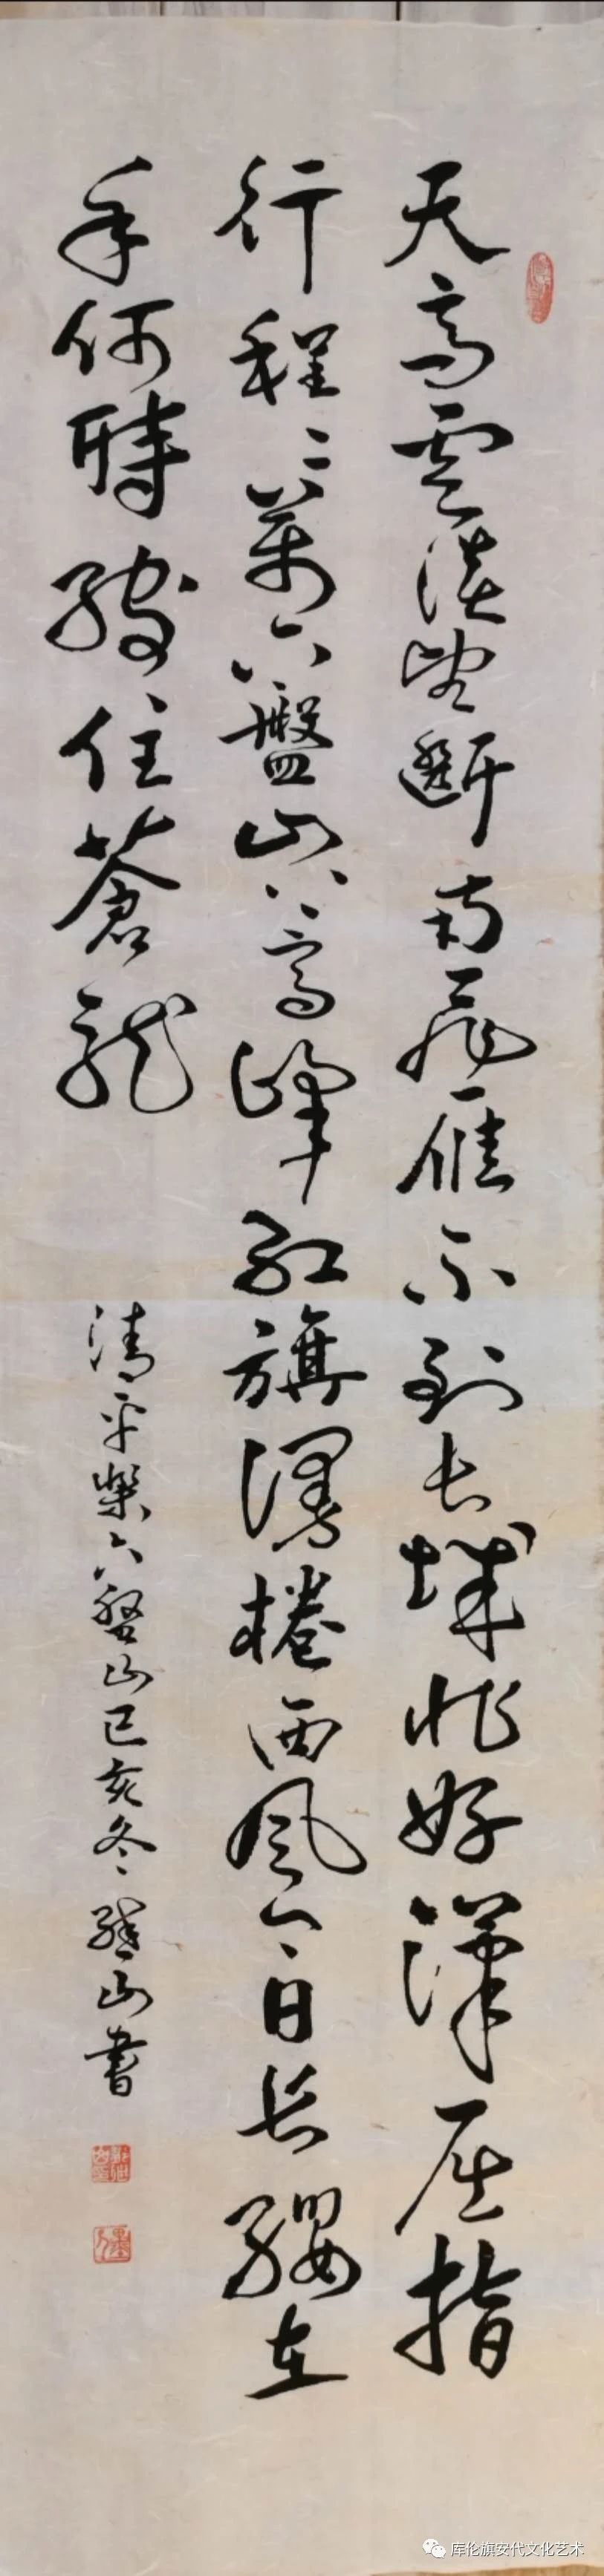 天高雲淡望斷南飛雁不到長城非好漢屈指
行程二萬六盤山上高峰紅旗漫捲西風今日長纓在
手何時縛住蒼龍
清平樂六盤山己亥冬山書
库伦旗安代文化艺术